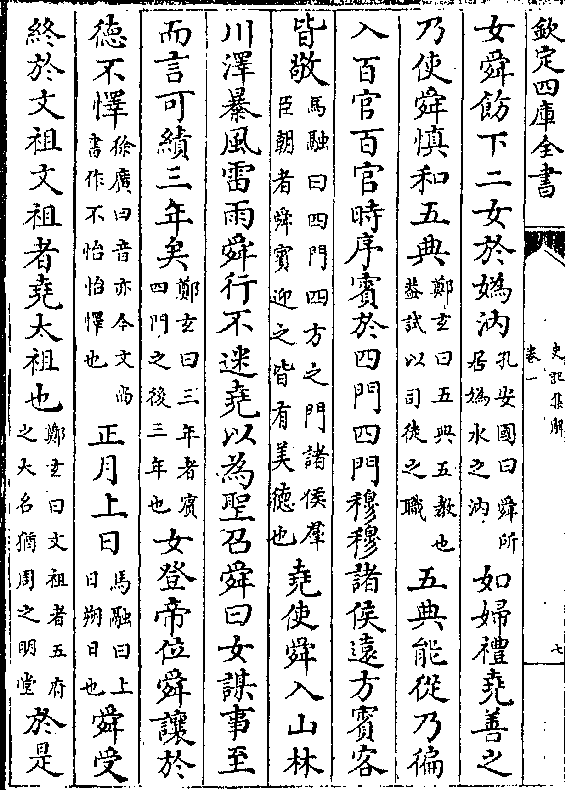 欽定四庫全書
史記集解
卷一
七
女舜飭下二女於媯汭孔安國曰舜所居媯水之汭如婦禮堯善之
乃使舜慎和五典鄭玄曰五典五教也葢試以司徒之職五典能從乃徧
入百官百官時序賓於四門四門穆穆諸侯遠方賓客
皆敬馬融曰四門四方之門諸侯羣臣朝者舜賓迎之皆有美德也堯使舜入山林
川澤暴風雷雨舜行不迷堯以為聖召舜曰女謀事至
而言可績三年矣鄭玄曰三年者賓四門之後三年也女登帝位舜讓於
德不懌徐廣曰音亦今文尚書作不怡怡懌也正月上日馬融曰上日朔日也舜受
終於文祖文祖者堯太祖也鄭玄曰文祖者五府之大名猶周之明堂於是